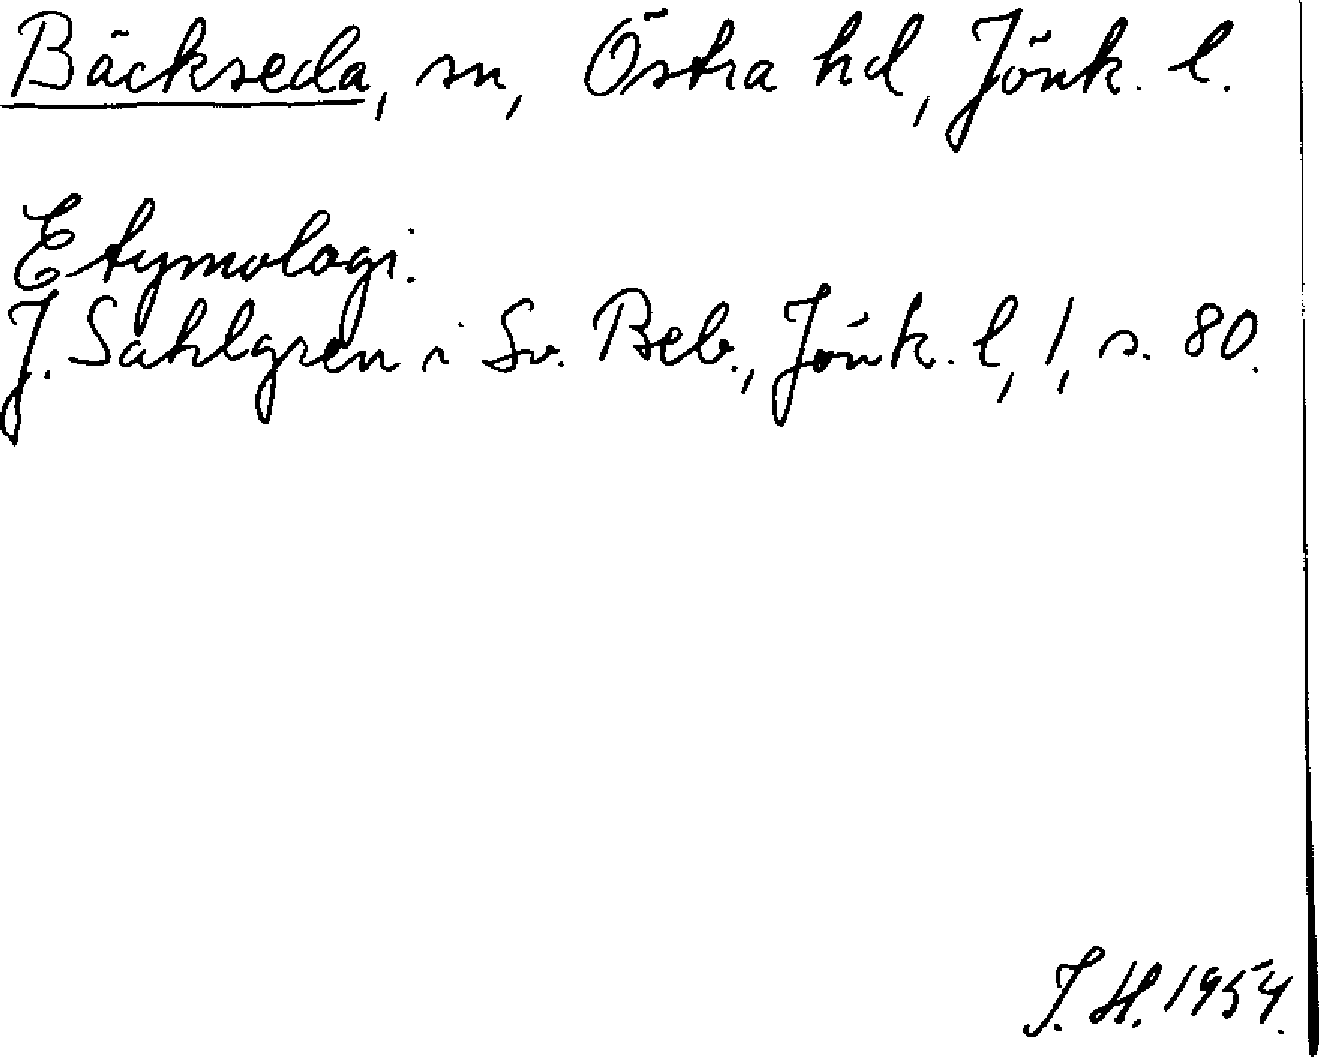 Bäckseda, sn, Östra hd, Jönk. l.
Etymologi.
J. Sahlgren i Sv. Beb., Jönk. l, 1, s. 80.
J. H. 1954.